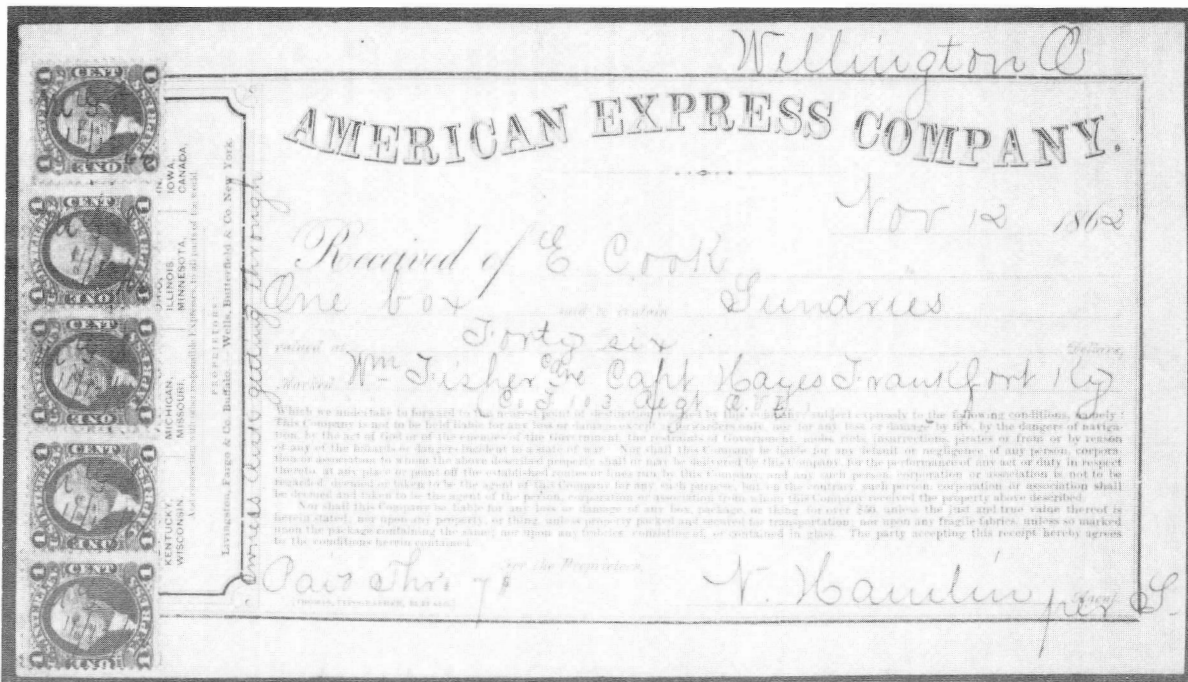 Wellington O
AMERICAN EXPRESS COMPANY.
Nov 12 1862
Received of E Cook
One box said to contain Sundries
valued at Forty six Dollars,
Marked Wm Fisher Care Capt Hayes Frankfort Ky
Co. I 103 Regt O.V.I.
Which we undertake to forward to the nearest point of destination reached by this Company subject expressly to the following conditions, namely:
This Company is not to be held liable for any loss or damage except as forwarders only, nor for any loss or damage by fire, by the dangers of naviga-
tion, by the act of God or of the enemies of the Government, the restraints of Government, mobs, riots, insurrections, pirates or from or by reason
of any of the hazards or dangers incident to a state of war. Nor shall this Company be liable for any default or negligence of any person, corpora-
tion or association to whom the above described property shall or may be delivered by this Company, for the performance of any act or duty in respect
thereto, at any place or point off the established routes or lines run by this Company, and any such person, corporation or association is not to be
regarded, deemed or taken to be the agent of this Company for any such purpose, but on the contrary, such person, corporation or association shall
be deemed and taken to be the agent of the person, corporation or association from whom this Company received the property above described.
Nor shall this Company be liable for any loss or damage of any box, package, or thing, for over $50, unless the just and true value thereof is
herein stated; nor upon any property, or thing, unless properly packed and secured for transportation; nor upon any fragile fabrics, unless so marked
upon the package containing the same; nor upon any fabrics, consisting of, or contained in glass. The party accepting this receipt hereby agrees
to the conditions herein contained.
For the Proprietors,
Paid Thro 7
N. Hamlin Agent
per S.
IOWA,
CANADA,
ILLINOIS,
MINNESOTA,
MICHIGAN,
MISSOURI,
KENTUCKY,
WISCONSIN,
And connecting with other responsible Expresses, to all parts of the world.
PROPRIETORS
Livingston, Fargo & Co. Buffalo. Wells, Butterfield & Co. New York.
Owners getting through
ONE CENT
EXPRESS
ONE CENT
EXPRESS
ONE CENT
EXPRESS
ONE CENT
EXPRESS
ONE CENT
EXPRESS